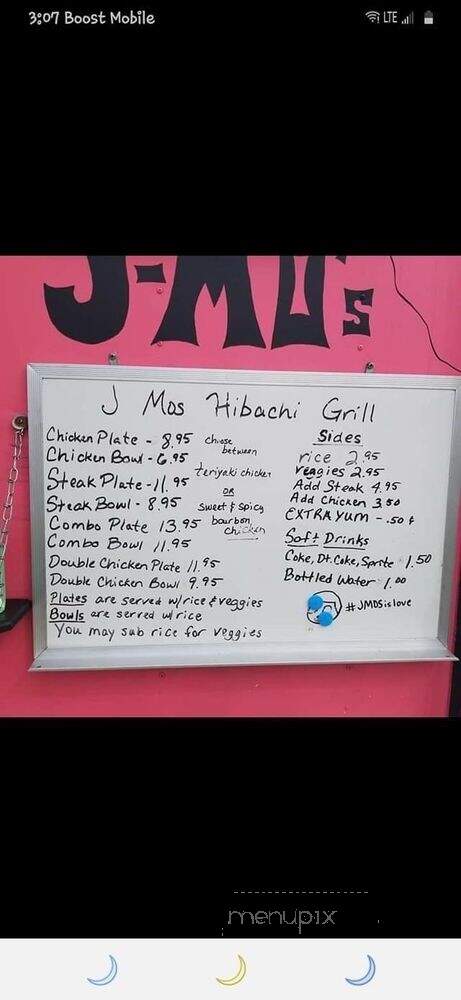 3:07 Boost Mobile
LTE
J-MO's
J Mos Hibachi Grill
Chicken Plate - 8.95
Chicken Bowl - 6.95
Steak Plate - 11.95
Steak Bowl - 8.95
Combo Plate 13.95
Combo Bowl 11.95
Double Chicken Plate 11.95
Double Chicken Bowl 9.95
Plates are served w/rice & veggies
Bowls are served w/rice
You may sub rice for veggies
choose
between
teriyaki chicken
OR
sweet & spicy
bourbon
chicken
Sides
rice 2.95
veggies 2.95
Add Steak 4.95
Add Chicken 3.50
EXTRA YUM - .50 ¢
Soft Drinks
Coke, Dt. Coke, Sprite 1.50
Bottled Water 1.00
#JMOSislove
menupix